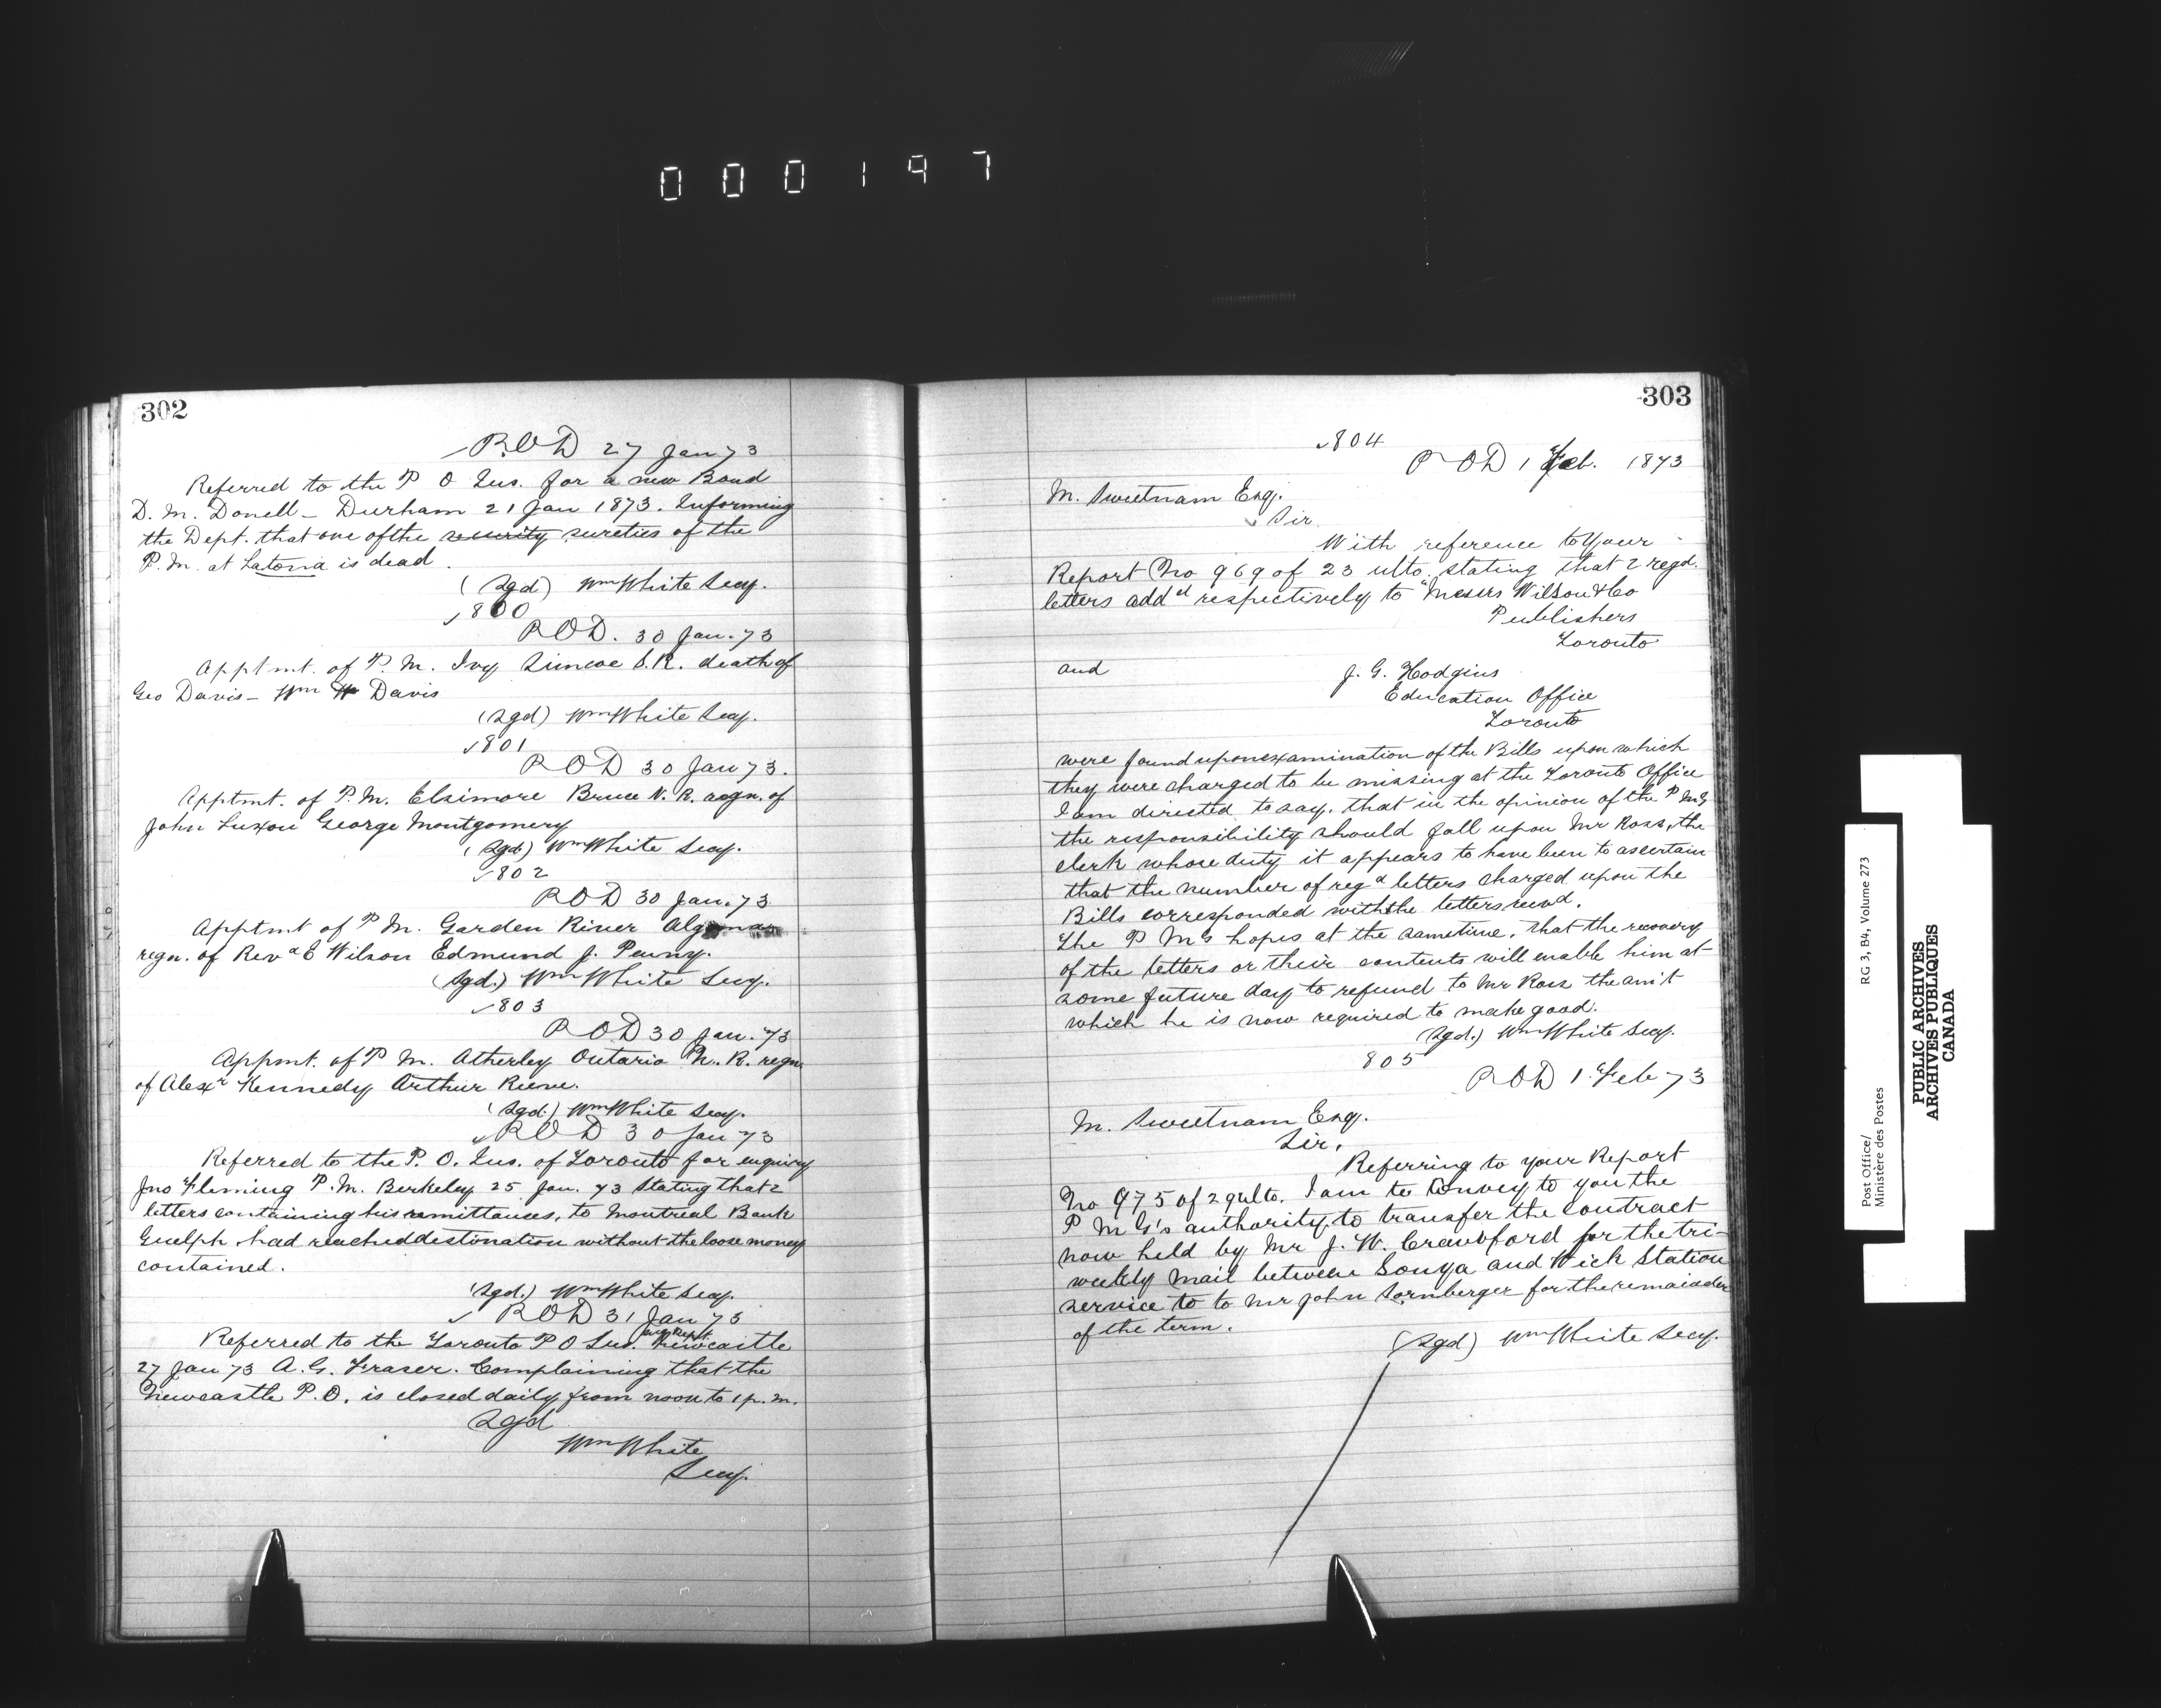 000197
302
P.O.D 27 Jan 73
Referred to the P O Ins. for a new Bond
D. M. Donell – Durham 21 Jan 1873. Informing
the Dept. that one of the security sureties of the
P.M. at Latona is dead.
(Sgd) Wm White Secy.
800
P.O.D. 30 Jan. 73
Apptmt. of P.M. Ivy Simcoe S.R. death of
Geo Davis – Wm W Davis
(Sgd) Wm White Secy.
801
P O D 30 Jan 73.
Apptmt. of P.M. Elsimore Bruce N.R. regn. of
John Luxon George Montgomery
(Sgd) Wm White Secy.
802
P O D 30 Jan. 73
Apptmt of P M. Garden River Algoma
regn. of Revd E Wilson Edmund J. Penny.
(Sgd.) Wm White Secy.
803
P O D 30 Jan. 73
Appmt. of P M. Atherley Ontario N. R. regn
of Alexr Kennedy Arthur Reeve.
(Sgd.) Wm White Secy.
P O D 30 Jan 73
Referred to the P. O. Ins. of Toronto for enquiry
Jno Fleming P.M. Berkeley 25 Jan. 73 Stating that 2
letters containing his remittances, to Montreal Bank
Guelph had reached destination without the loose money
contained.
(Sgd.) Wm White Secy.
P O D 31 Jan 73
Referred to the Toronto P O Ins. Newcastle
27 Jan 73 A. G. Fraser. Complaining that the
Newcastle P.O. is closed daily from noon to 1 p.m.
Sgd
Wm White
Secy.
303
804
P O D 1 Feb. 1873
M. Sweetnam Esq.
Sir.
With reference to Your
Report No 969 of 23 ulto. stating that 2 regd.
letters addd respectively to "Messrs Wilson & Co
Publishers
Toronto
and J. G. Hodgins
Education Office
Toronto
were found upon examination of the Bills upon which
they were charged to be missing at the Toronto Office
I am directed to say, that in the opinion of the P M G
the responsibility should fall upon Mr Ross, the
clerk whose duty it appears to have been to ascertain
that the number of regd letters charged upon the
Bills corresponded with the letters recvd.
The P M G hopes at the same time, that the recovery
of the letters or their contents will enable him at
some future day to refund to Mr Ross the am't
which he is now required to make good.
(Sgd.) Wm White Secy.
805
P O D 1. Feb 73
M. Sweetnam Esq.
Sir,
Referring to your Report
No 975 of 29 ulto. I am to Convey to you the
P M G's authority, to transfer the Contract
now held by Mr J. W. Crawford for the tri-
weekly Mail between Sonya and Wick Station
service to to Mr John Sornberger for the remainder
of the term.
(Sgd) Wm White Secy.
Post Office/
Ministère des Postes
RG 3, B4, Volume 273
PUBLIC ARCHIVES
ARCHIVES PUBLIQUES
CANADA